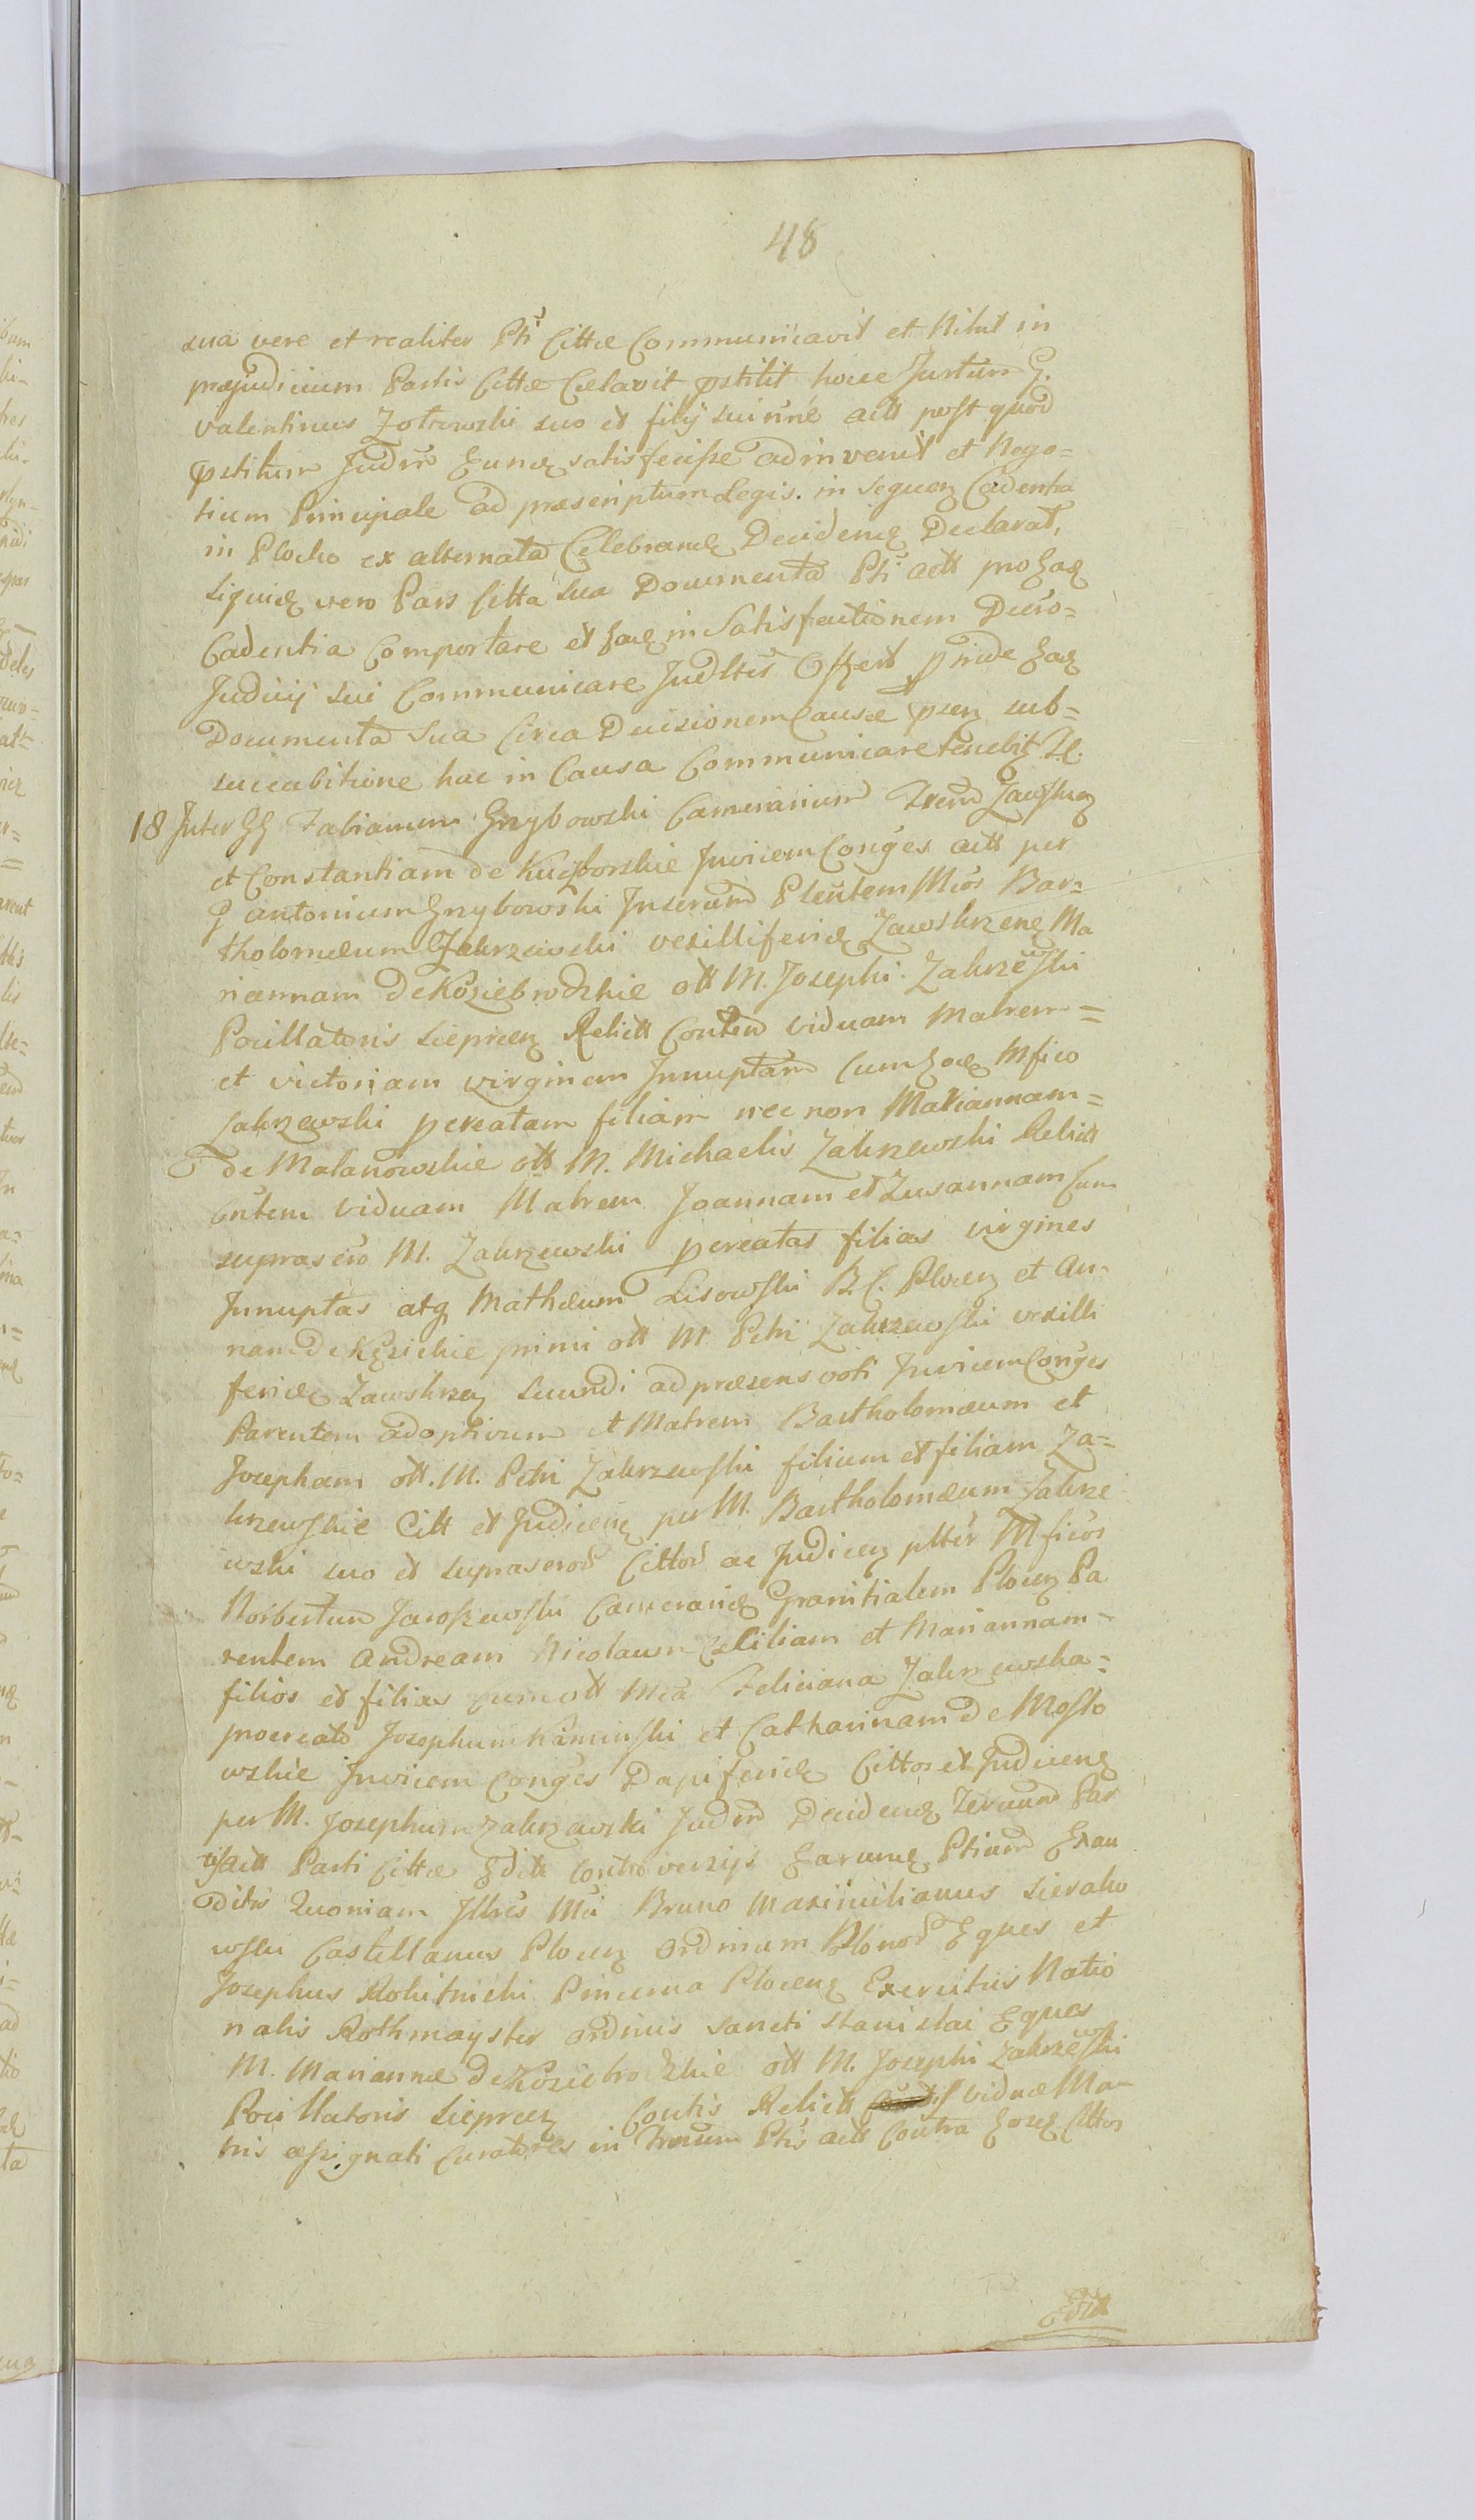 48
sua vere et realiter Pti Cittæ Communicavit et Nihil in
præjudicium Partis Cittæ Celavit pstitit hocce Jurtum G.
Valentinus Zotowski suo et filij sui nne actt post quod
pstitum Judm Eundq satisfecisse adinvenit et Nego=
tium Principale ad præscriptum Legis in Sequen Cadentia
in Plocko ex alternata Celebrandq Decidendq Declarat,
Siquidq vero Pars Citta sua Documenta Pti actt pro Eadq
Cadentia Comportare et Eadq in Satisfactionem Decro=
Judicij sui Communicare Judltr Offert proinde Eadq
Documenta Sua Circa Decisionem Causæ psen sub=
succubitione hac in Causa Communicare tenebit
18 Inter GG Fabianum Grzybowski Camerarium Zawskrzen
et Constantiam de Kuczborskie Invicem Conges actt per
G Antonium Grzybowski Plentem Mcos Bar=
tholomæum Zakrzewski vexilliferidq Zawskrzenq Ma
riannam de Koziebrodzkie ott M. Josephi Zakrzewski
Pocillatoris Sieprcen Relictt Contem viduam Matrem =
et Victoriam virginem Innuptam Cum Eodq Mfico
Zakrzewski pcreatam filiam nec non Mariannam=
de Malanowskie ott M. Michaelis Zakrzewski Relictt
Contem viduam Matrem Joannam et Zusannam Cum
suprascro M. Zakrzewski pcreatas filias virgines
Innuptas atq Mathæum Lisowski B. C. Plocen et An=
nam de Kęsickie primi ott M. Petri Zakrzewski vexilli
feridq Zawskrzen Secundi ad præsens voti Invicem Conges
Parentem adoptivum et Matrem Bartholomæum et
Josepham ott. M. Petri Zakrzewski filium et filiam Za=
krzewskie Citt et Judicenq per M. Bartholomæum Zakrze
wski suo et suprascrod Cittod ac Judicen plttr Mficos
Norbertum Jaroszewski Cameraridq Granitialem Plocen Pa
rentem Andream Nicolaum Cæciliam et Mariannam=
filios et filias cum ott Mca Feliciana Zakrzewska=
procreato Josephum Kaminski et Catharinam de Mosto
wskie Invicem Conges Dapiferidq Cittos et Judicenq
per M. Josephum Zakrzewski Judm Decidendq Par
tis actt Parti Cittæ Edita Controversijs Earumq Ptium Exau
ditis Quoniam Illres Mci Bruno Maximilianus Sierako
wski Castellanus Plocen Ordinum Plonod Eques et
Josephus Rokitnicki Pincerna Plocenq Exercitus Natio
nalis Rothmayster Ordinis Sancti Stanislai Eques
M. Mariannæ de Koziebrodzkie ott M. Josephi Zakrzewski
Pocillatoris Sieprcen Contis Relictt viduæ Ma=
tris assignati Curatores in Ptis actt Contra Eosq Cittos